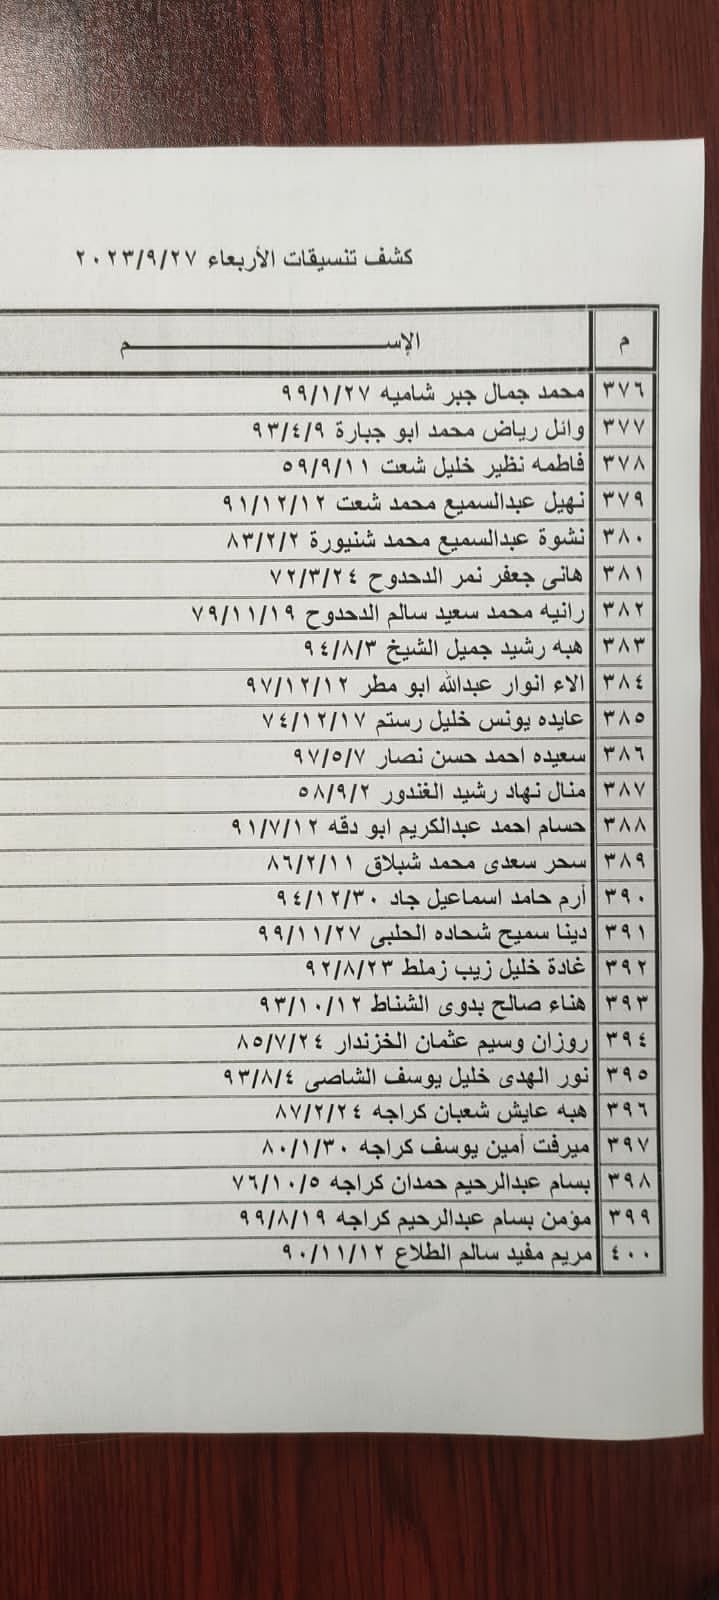 كشف تنسيقات الأربعاء ٢٠٢٣/٩/٢٧
م الإســـــــــــم
٣٧٦ محمد جمال جبر شاميه ٩٩/١/٢٧
٣٧٧ وائل رياض محمد ابو جبارة ٩٣/٤/٩
٣٧٨ فاطمه نظير خليل شعت ٥٩/٩/١١
٣٧٩ نهيل عبدالسميع محمد شعت ٩١/١٢/١٢
٣٨٠ نشوة عبدالسميع محمد شنيورة ٨٣/٢/٢
٣٨١ هانى جعفر نمر الدحدوح ٧٢/٣/٢٤
٣٨٢ رانيه محمد سعيد سالم الدحدوح ٧٩/١١/١٩
٣٨٣ هبه رشيد جميل الشيخ ٩٤/٨/٣
٣٨٤ الاء انوار عبدالله ابو مطر ٩٧/١٢/١٢
٣٨٥ عايده يونس خليل رستم ٧٤/١٢/١٧
٣٨٦ سعيده احمد حسن نصار ٩٧/٥/٧
٣٨٧ منال نهاد رشيد الغندور ٥٨/٩/٢
٣٨٨ حسام احمد عبدالكريم ابو دقه ٩١/٧/١٢
٣٨٩ سحر سعدى محمد شبلاق ٨٦/٢/١١
٣٩٠ أرم حامد اسماعيل جاد ٩٤/١٢/٣٠
٣٩١ دينا سميح شحاده الحلبى ٩٩/١١/٢٧
٣٩٢ غادة خليل زيب زملط ٩٢/٨/٢٣
٣٩٣ هناء صالح بدوى الشناط ٩٣/١٠/١٢
٣٩٤ روزان وسيم عثمان الخزندار ٨٥/٧/٢٤
٣٩٥ نور الهدى خليل يوسف الشاصى ٩٣/٨/٤
٣٩٦ هبه عايش شعبان كراجه ٨٧/٢/٢٤
٣٩٧ ميرفت أمين يوسف كراجه ٨٠/١/٣٠
٣٩٨ بسام عبدالرحيم حمدان كراجه ٧٦/١٠/٥
٣٩٩ مؤمن بسام عبدالرحيم كراجه ٩٩/٨/١٩
٤٠٠ مريم مفيد سالم الطلاع ٩٠/١١/١٢